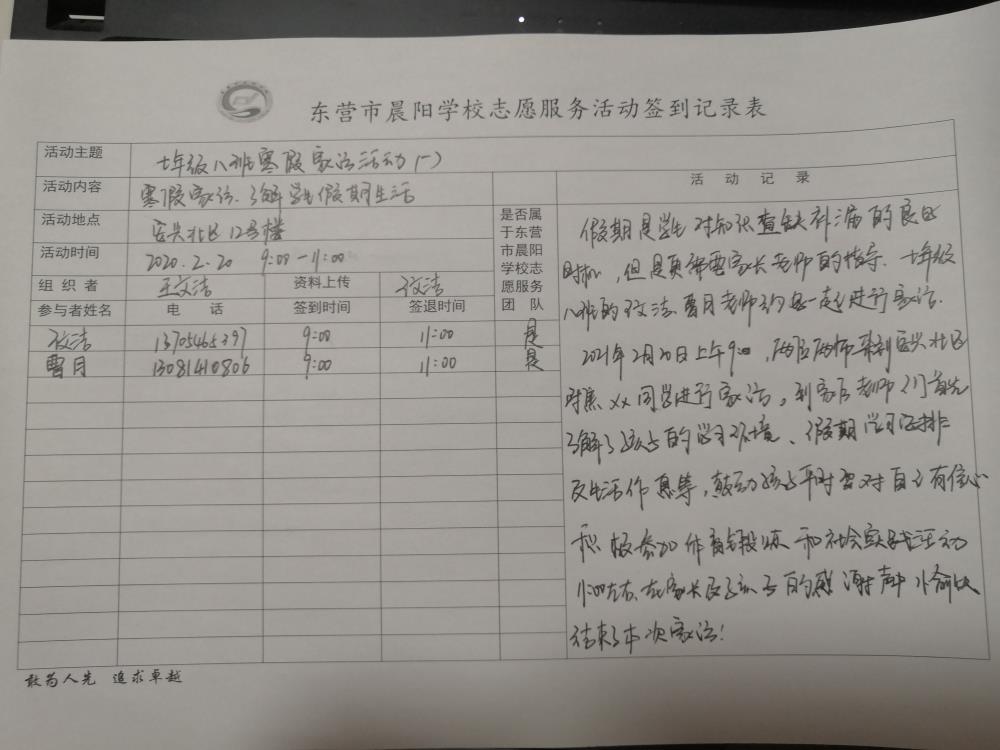 东营市晨阳学校志愿服务活动签到记录表
活动主题 七年级八班寒假家访活动(一)
活动内容 寒假家访、了解学生假期生活
活动地点 区12号楼
活动时间 2020.2.20 9:00-11:00
组织者 王文洁 资料上传
参与者姓名 电话 签到时间 签退时间
是否属
于东营
市晨阳
学校志
愿服务
团队
13705465397 9:00 11:00 是
曹月 13081410806 9:00 11:00 是
活动记录
假期是学生对知识查缺补漏的良好
时机,但是更需要家长老师的指导.七年级
八班的 曹月老师 一起进行家访.
2021年2月20日上午9:00,两位老师来到
对焦xx同学进行家访,到家后老师们首先
了解了孩子的学习环境、假期学习安排
及生活作息等,鼓励孩子平时要对自己有信心
积极参加体育锻炼和社会实践活动
11:00左右,在家长及孩子的感谢声中愉快
结束了本次家访!
敢为人先 追求卓越